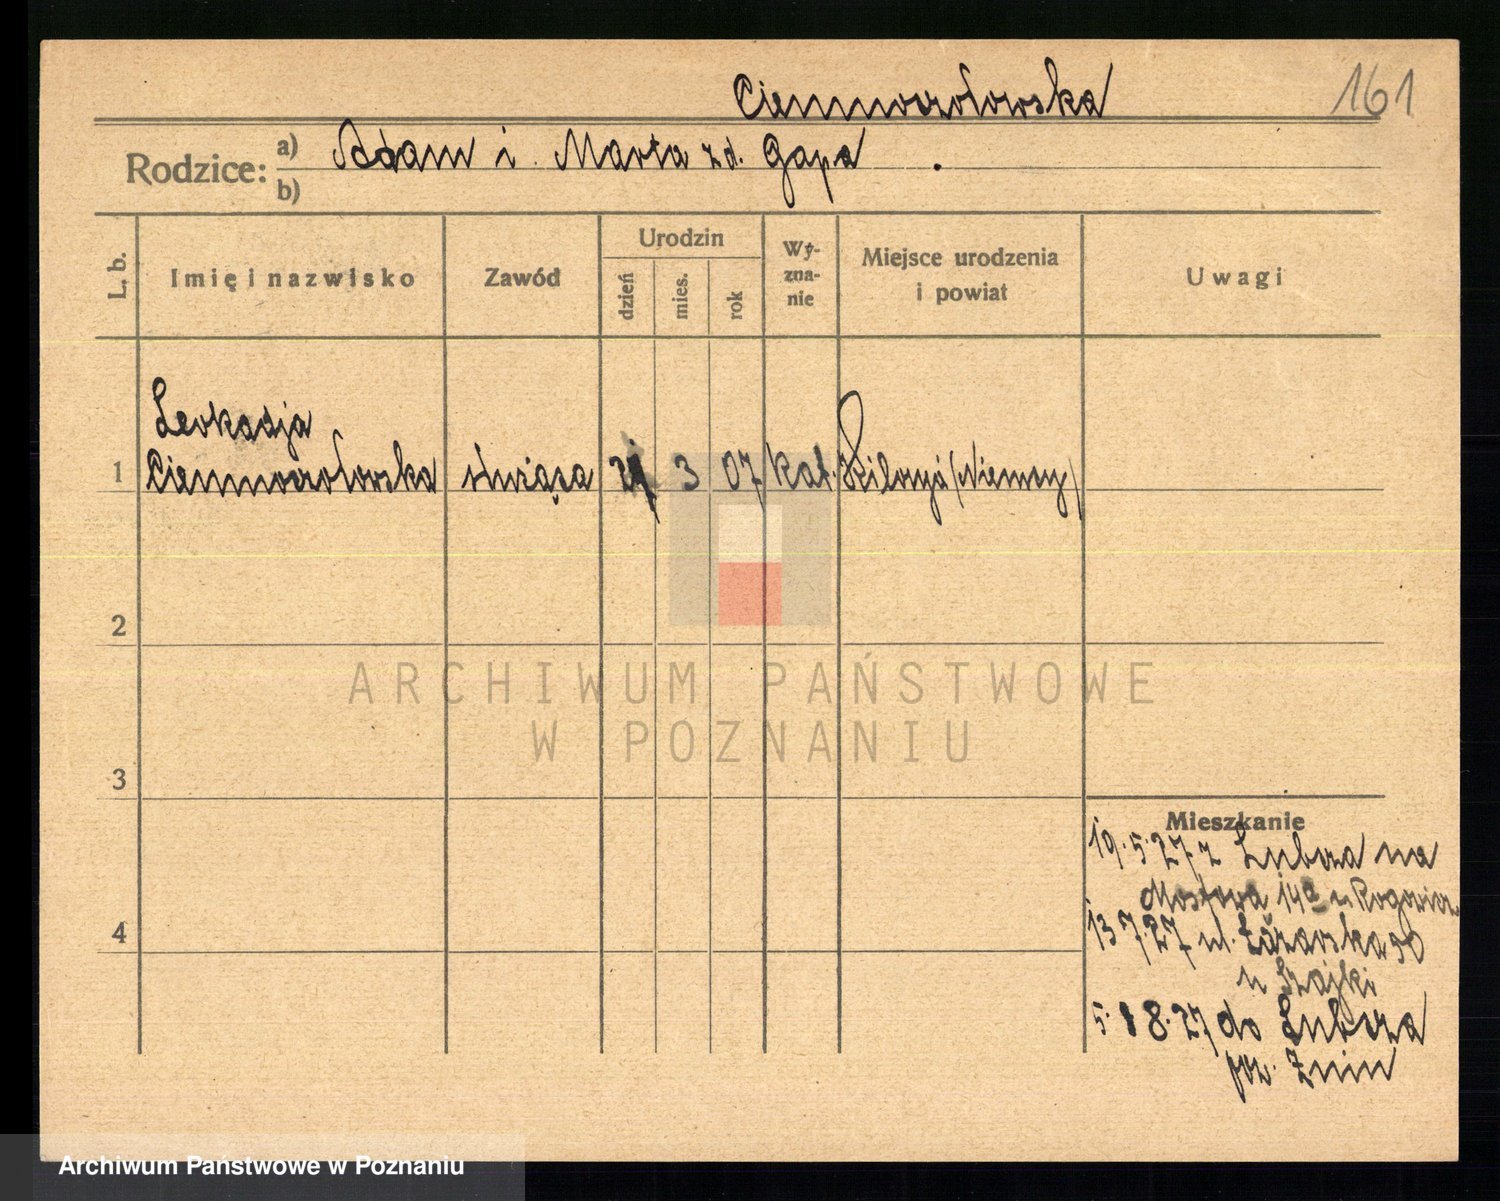 Ciemnoczołowska
161
Rodzice:
a) Adam i Marta zd. Gapa
b)
L. b.
Imię i nazwisko
Zawód
Urodzin
dzień
mies.
rok
Wy-
zna-
nie
Miejsce urodzenia
i powiat
Uwagi
Leokadja
1 Ciemnoczołowska służąca 3 07 kat. Kilonja (Niemcy)
2
3
4
Mieszkanie
19.5.27 z Lubcza na
Mostowa 14a u
13 7.27 ul.
u Szajki
5. 8.27 do Lubcza
pow. Żnin
ARCHIWUM PAŃSTWOWE
W POZNANIU
Archiwum Państwowe w Poznaniu